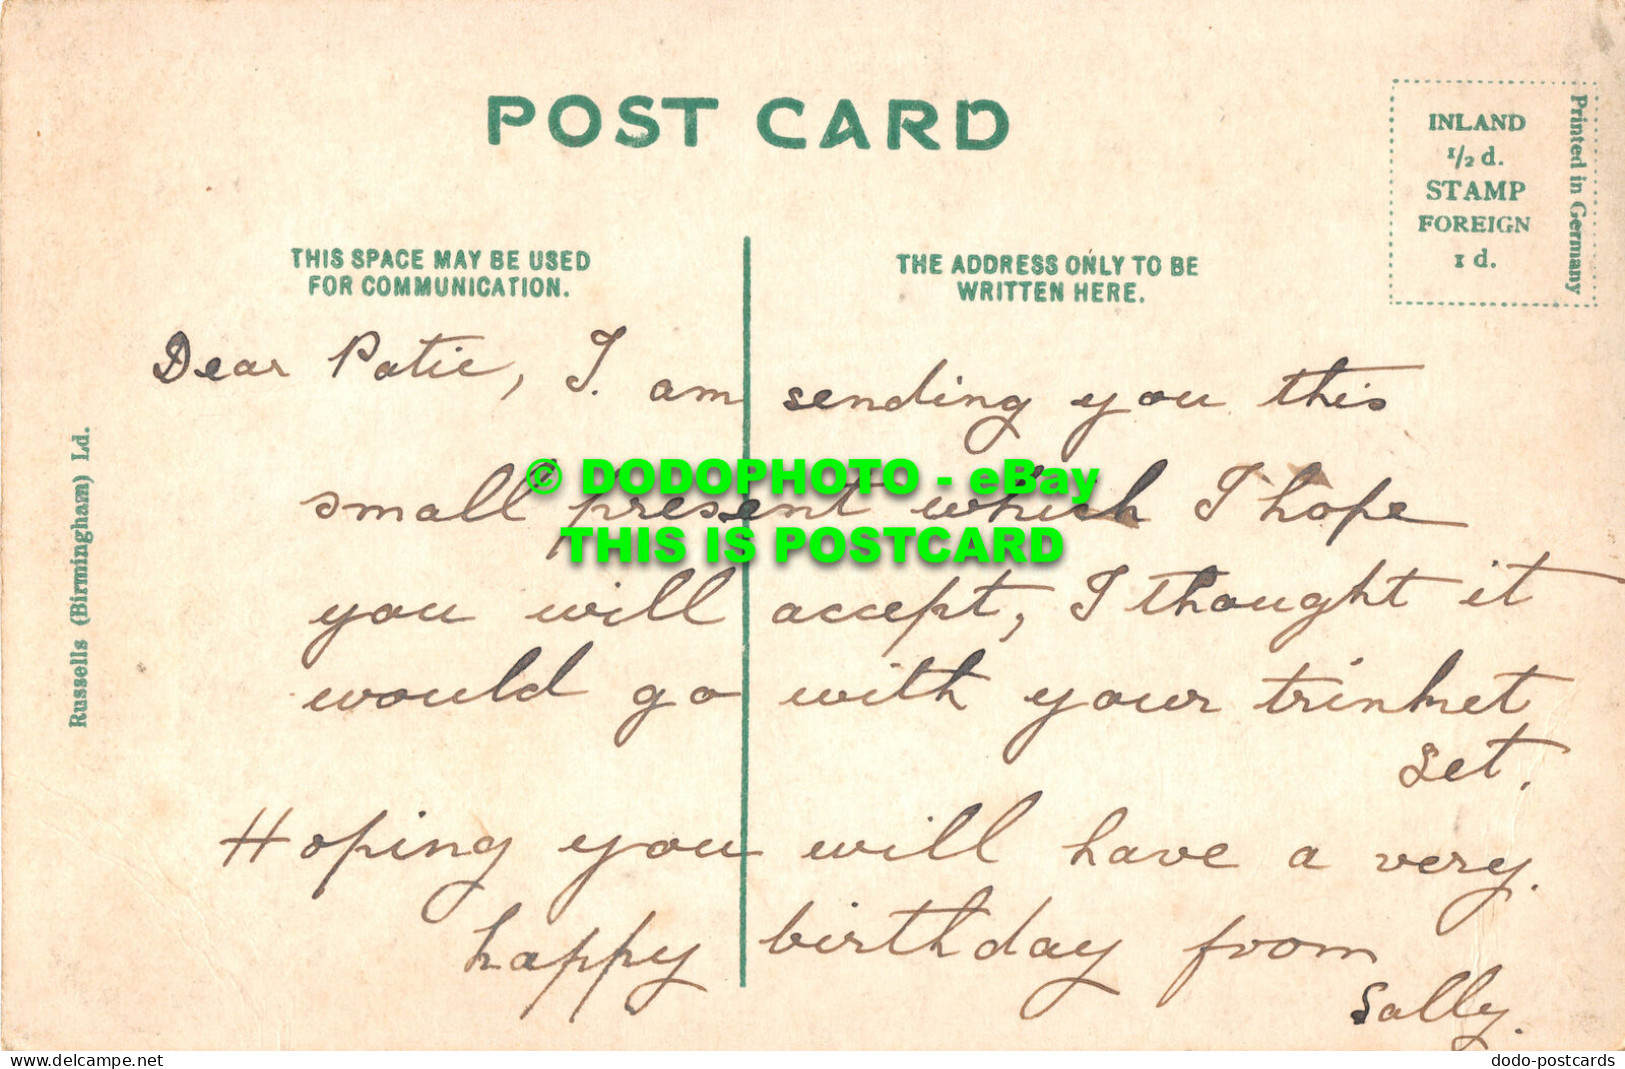 POST CARD
INLAND
1/2 d.
STAMP
FOREIGN
1 d.
Printed in Germany
THIS SPACE MAY BE USED
FOR COMMUNICATION.
THE ADDRESS ONLY TO BE
WRITTEN HERE.
Russells (Birmingham) Ld.
Dear Patie, I. am sending you this
small present which I hope
you will accept, I thought it
would go with your trinket
set.
Hoping you will have a very.
happy birthday from
Sally.
© DODOPHOTO - eBay
THIS IS POSTCARD
delcampe.net
dodo-postcards